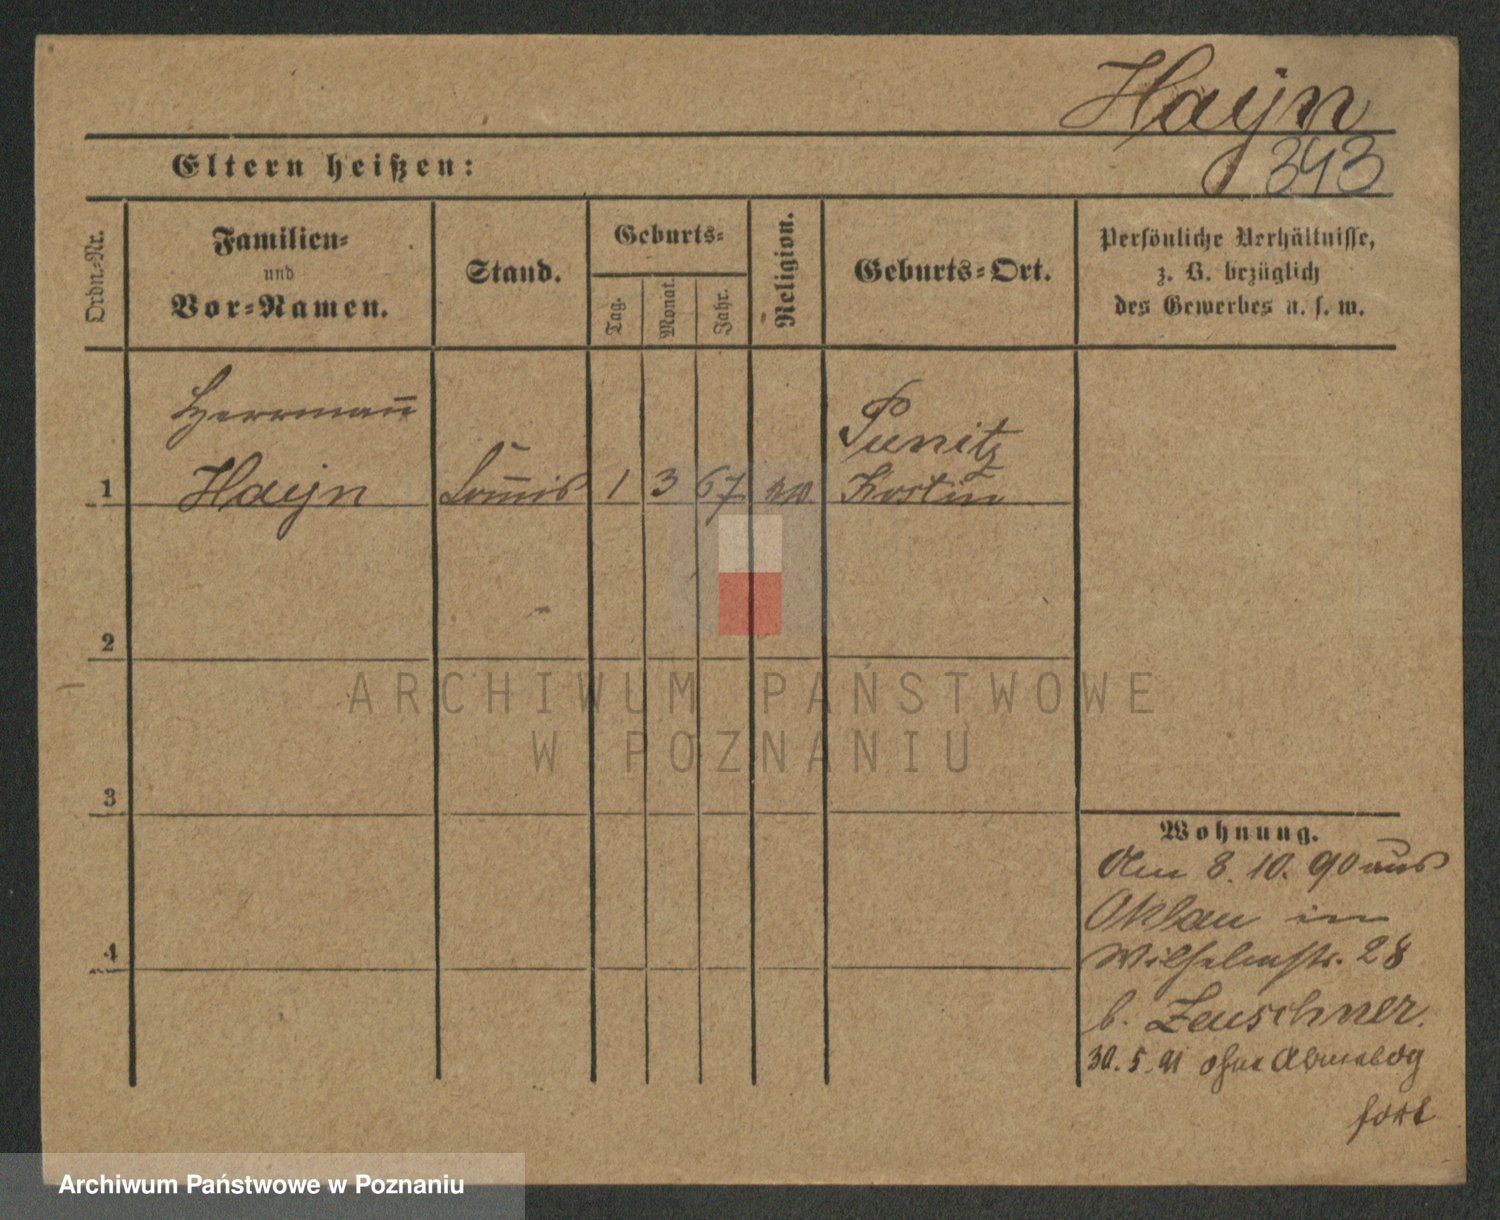 Hayn
343
Eltern heißen:
Ordn.-Nr.
Familien-
und
Vor-Namen.
Stand.
Geburts-
Tag.
Monat.
Jahr.
Religion.
Geburts-Ort.
Persönliche Verhältnisse,
z. B. bezüglich
des Gewerbes u. s. w.
Herrmañ
Hayn
1
3
67
Punitz
1
2
3
4
Wohnung.
Am 8. 10. 90 aus
in
Wilhelmstr. 28
b. Zeuschner.
30. 5. 91 ohne
fort
ARCHIWUM PAŃSTWOWE
W POZNANIU
Archiwum Państwowe w Poznaniu